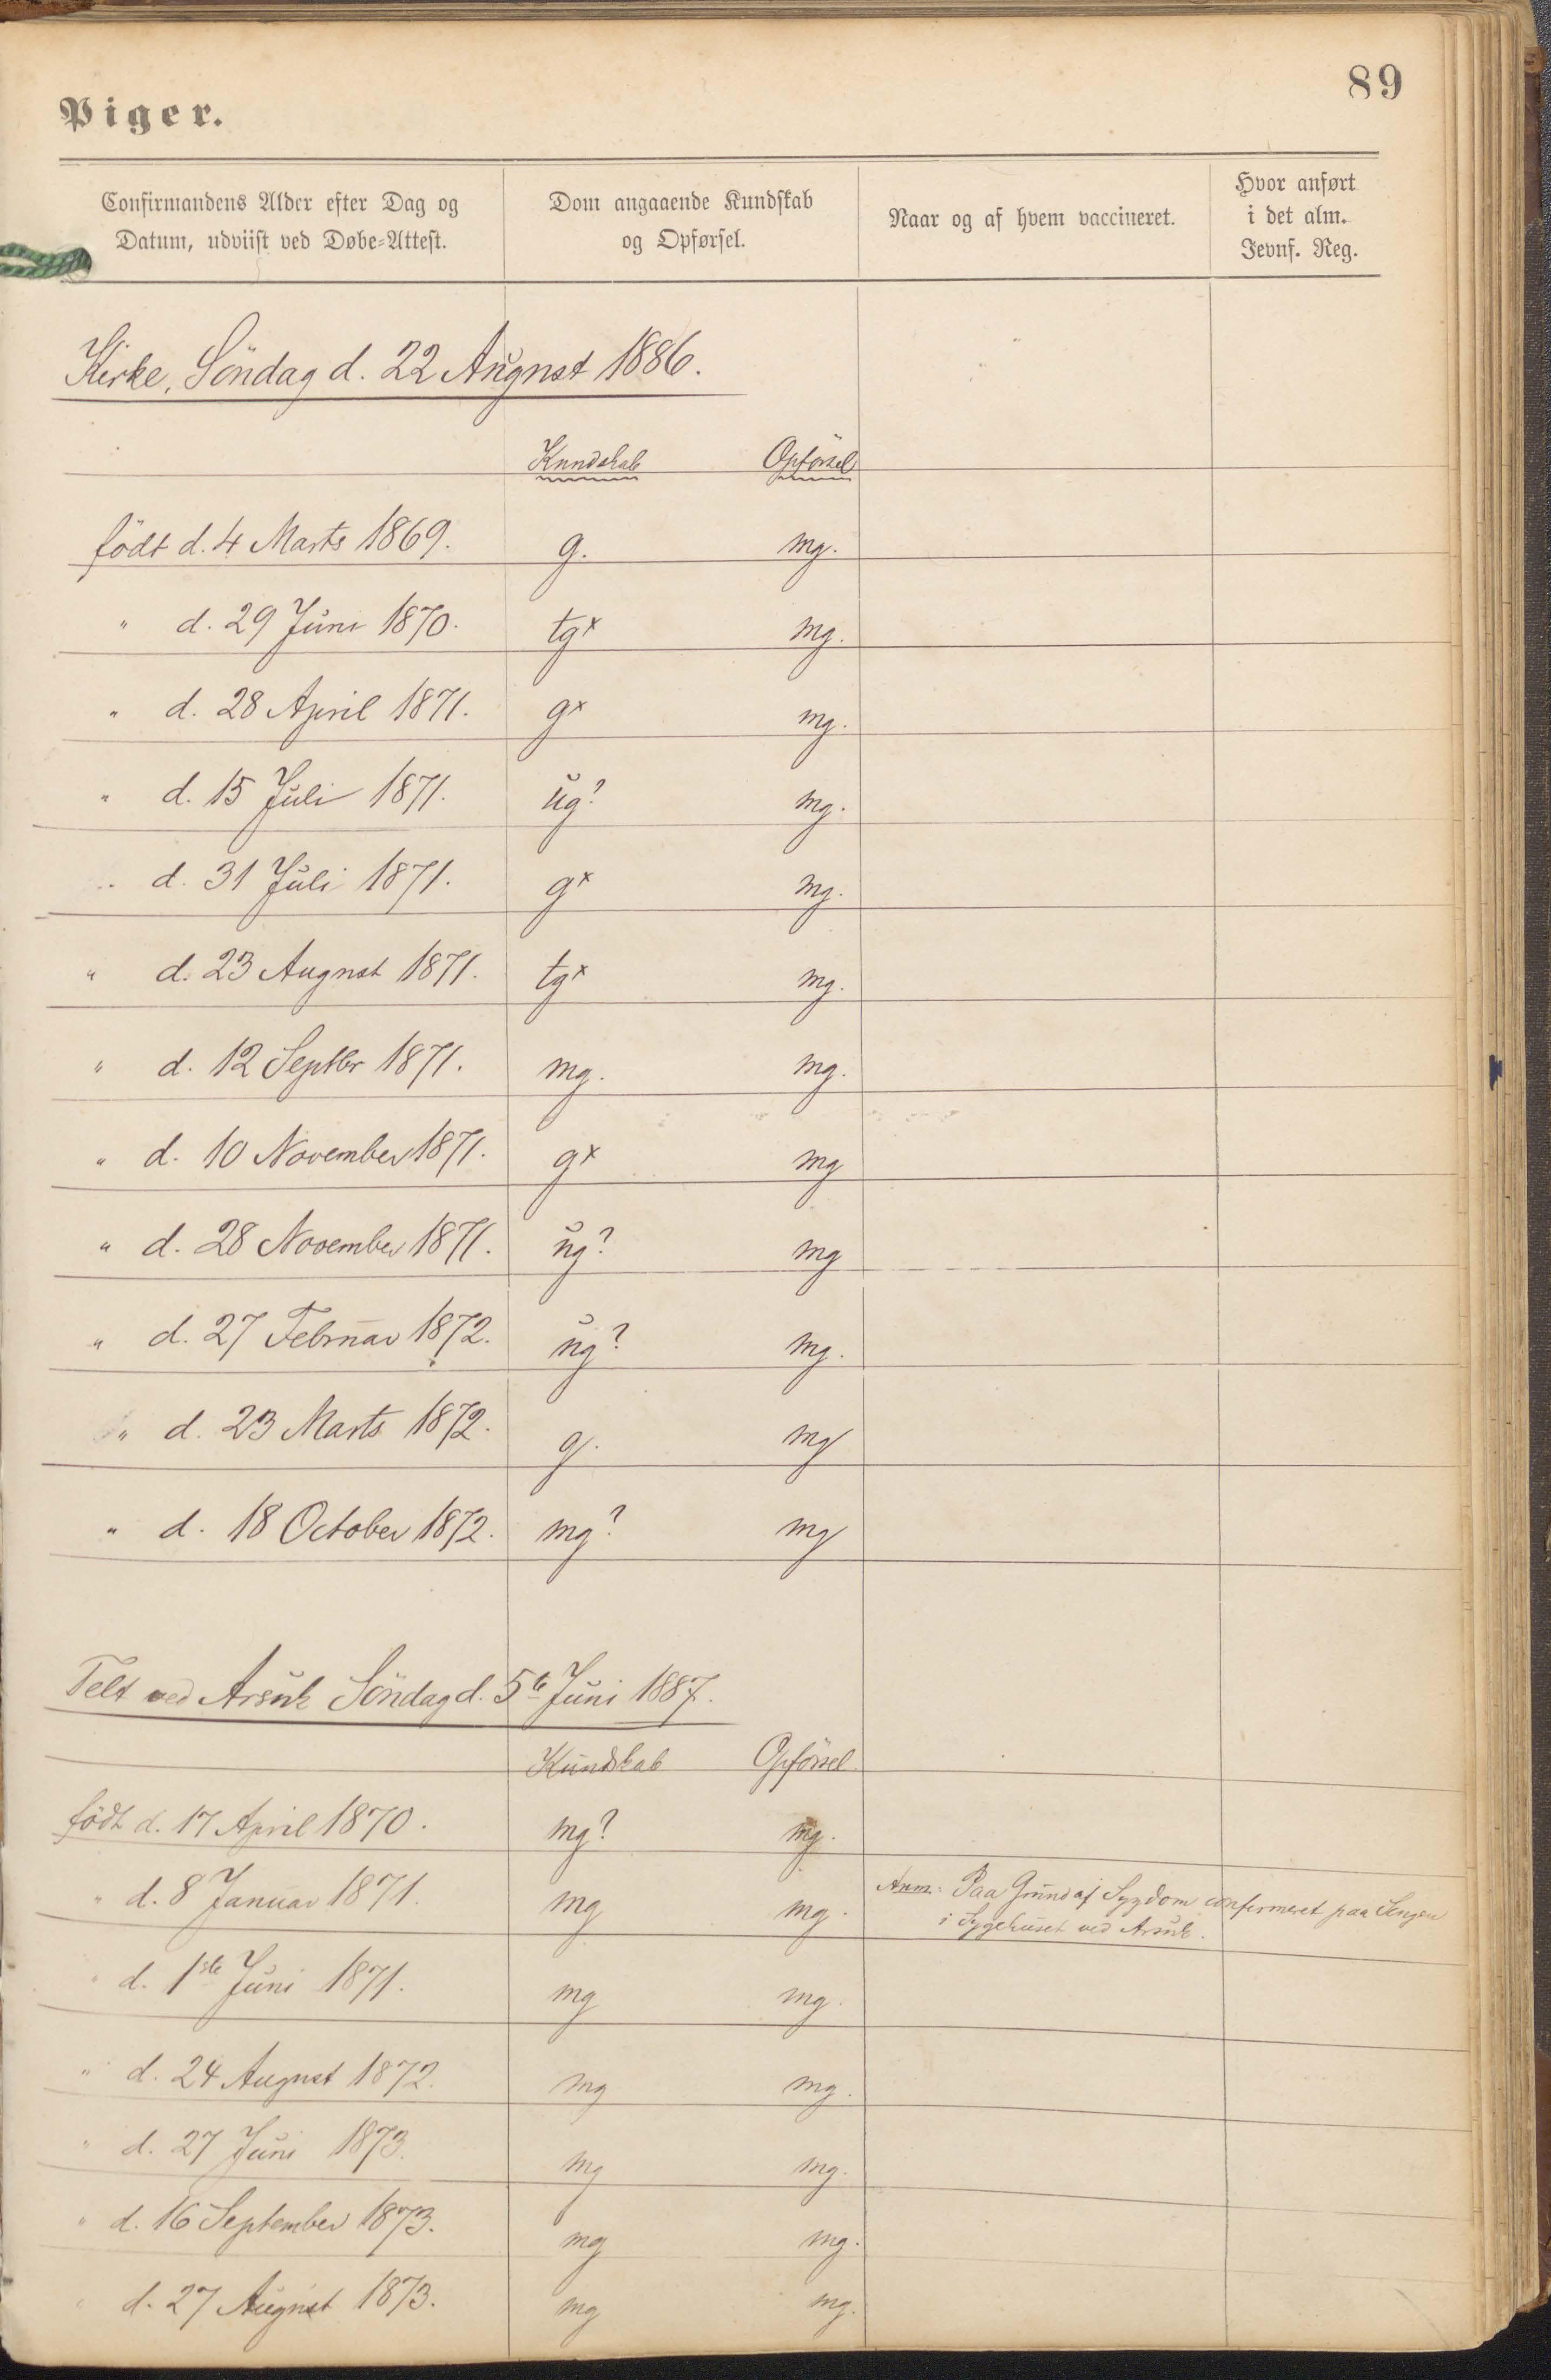 89
Piger.
Confirmandens Alder efter Dag og Datum, udviist ved Døbe-Attest.
Dom angaaende Kundskab og Opførsel.
Naar og af hvem vaccineret.
Hvor anført i det alm. Jevnf. Reg.
Kirke, Söndag d. 22 August 1886.
Kundskab Opförsel
födt d. 4 Marts 1869. g. mg.
" d. 29 Juni 1870. tgx mg.
" d. 28 April 1871. gx mg.
" d. 15 Juli 1871. ug? mg.
" d. 31 Juli 1871. gx mg.
" d. 23 August 1871. tgx mg.
" d. 12 Septbr 1871. mg. mg.
" d. 10 November 1871. gx mg
" d. 28 November 1871. ug? mg
" d. 27 Februar 1872. ug? mg.
" d. 23 Marts 1872. g. mg
" d. 18 October 1872. mg? mg
Telt ved Arsuk Söndag d. 5te Juni 1887.
Kundskab Opförsel
födt d. 17 April 1870. mg? mg.
" d. 8 Januar 1871. mg mg. Anm: Paa Grund af Sygdom confirmeret paa Sengen
i Sygehuset ved Arsuk.
" d. 1ste Juni 1871. mg mg.
" d. 24 August 1872. mg mg.
" d. 27 Juni 1873. mg mg.
" d. 16 September 1873. mg mg.
" d. 27 August 1873. mg mg.